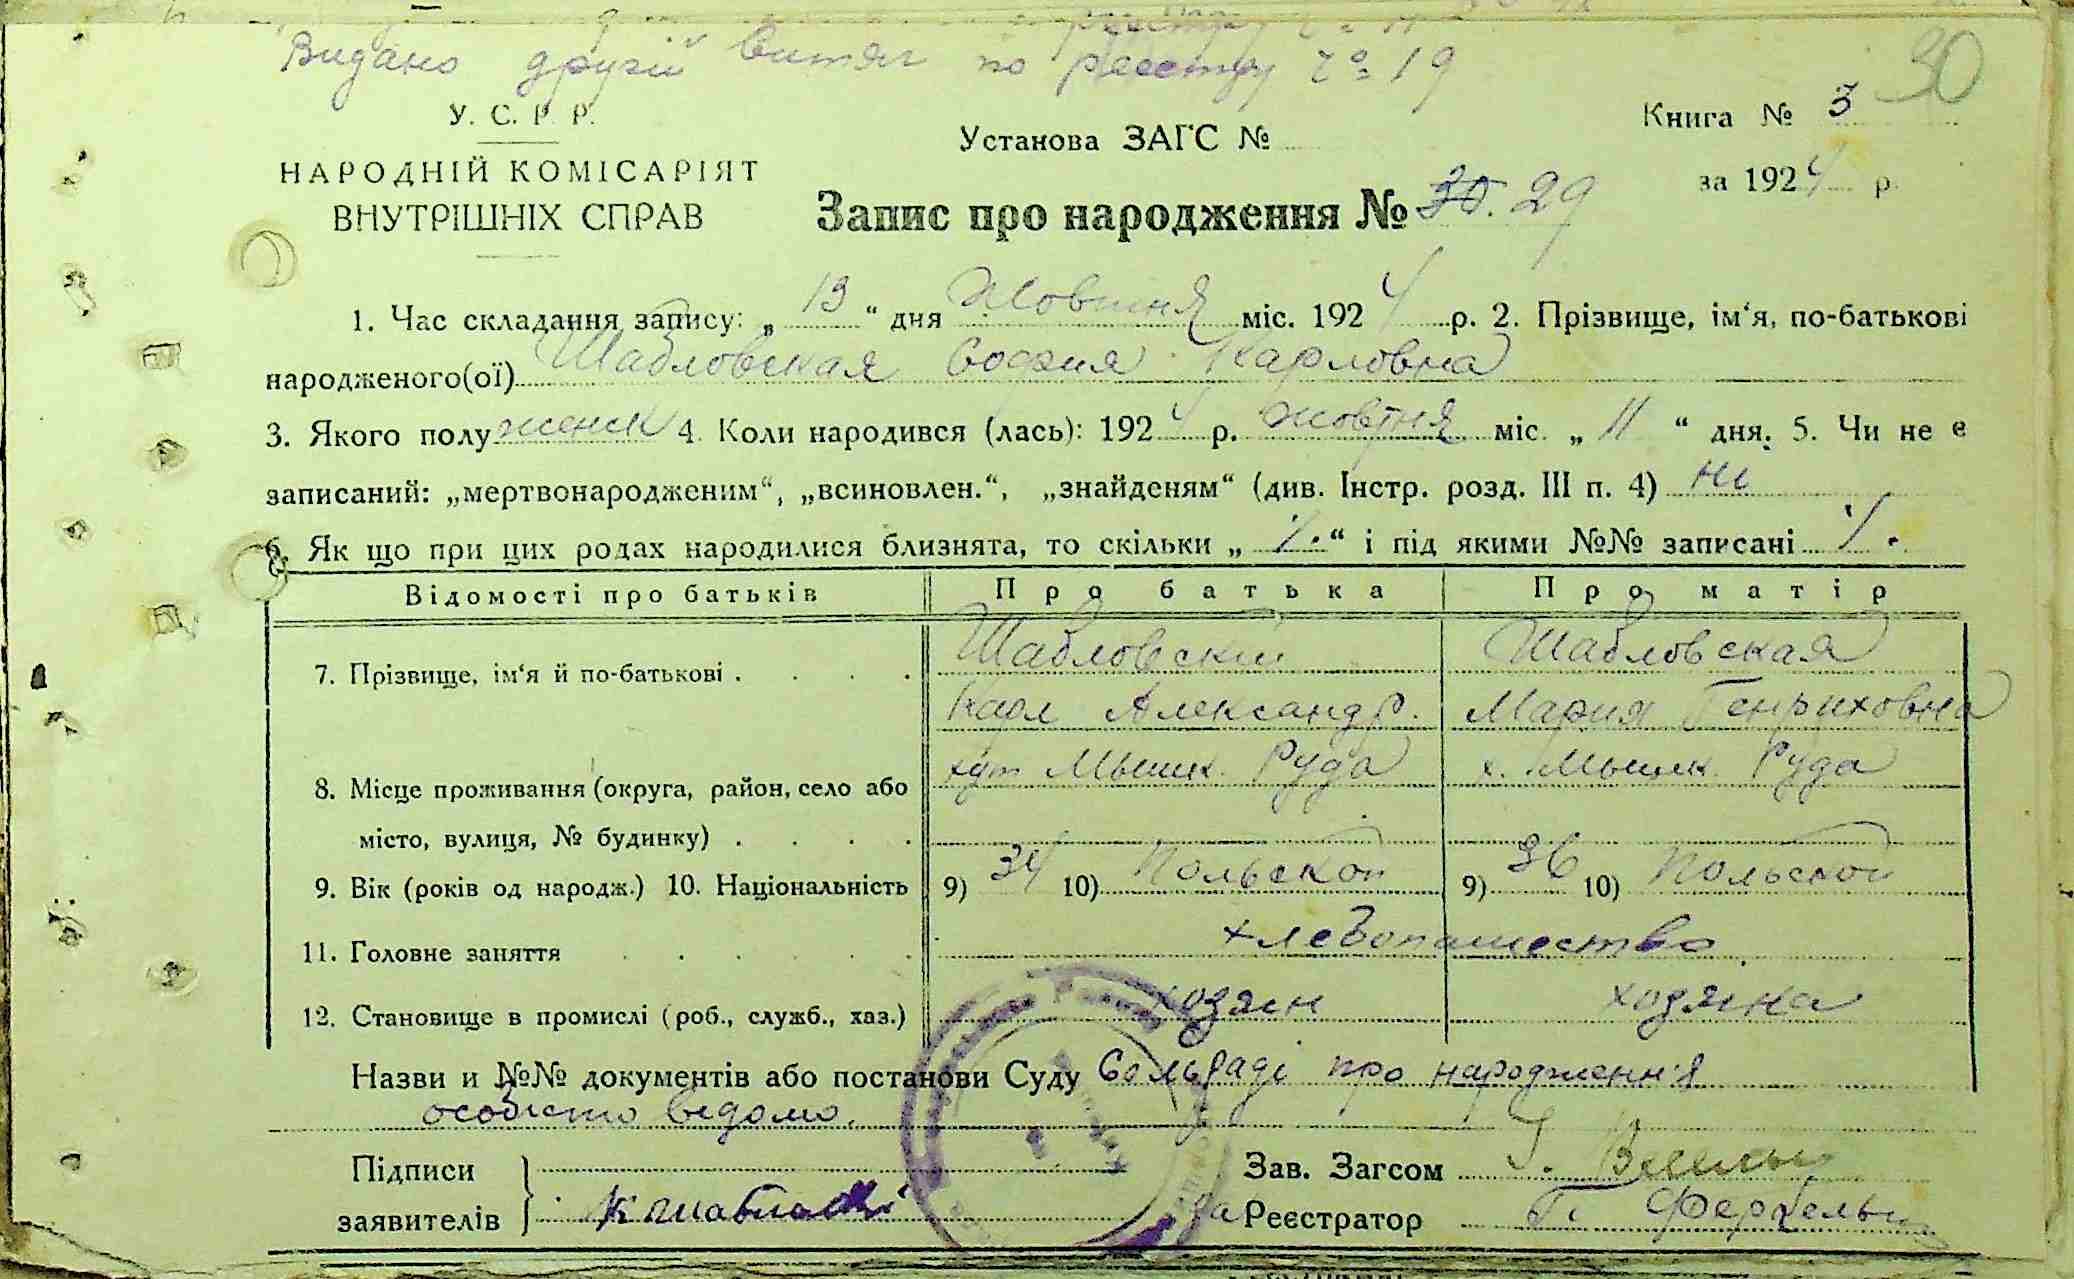 Видано другій витяг по реєстру № 19
30
У. С. Р. Р.
НАРОДНІЙ КОМІСАРІЯТ
ВНУТРІШНІХ СПРАВ
Установа ЗАГС №
Книга № 3
за 1924 р.
Запис про народження № 30. 29
1. Час складання запису: „ 13 “ дня Жовтня міс. 1924 р. 2. Прізвище, ім‘я, по-батькові
народженого(ої) Шабловская София Карловна
3. Якого полу женск 4. Коли народився (лась): 1924 р. жовтня міс. „ 11 “ дня. 5. Чи не є
записаний: „мертвонародженим“, „всиновлен.“, „знайденям“ (див. Інстр. розд. III п. 4) ні
6. Як що при цих родах народилися близнята, то скільки „ “ і під якими №№ записані
Відомості про батьків Про батька Про матір
7. Прізвище, ім‘я й по-батькові . . . . Шабловскій Шабловская
Карл Александр. Мария Генриховна
8. Місце проживання (округа, район, село або хут Мышик. Руда х. Мышик. Руда
місто, вулиця, № будинку) . . . .
9. Вік (років од народж.) 10. Національність 9) 34 10) Польской 9) 36 10) Польской
11. Головне заняття . . . . . хлебопашество
12. Становище в промислі (роб., служб., хаз.) хозяин хозяйка
Назви и №№ документів або постанови Суду Сольраді про народження
особисто відомо.
Підписи
заявителів
К Шабловскі
Зав. Загсом
за Реєстратор Г.